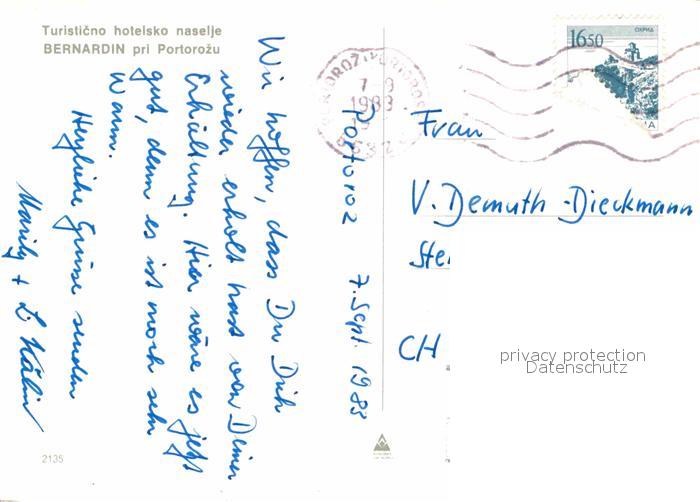 Turistično hotelsko naselje
BERNARDIN pri Portorožu
Portoroz 7. Sept. 1983
Wir hoffen, dass Du Dich
wieder erholt hast von Deiner
Erkältung. Hier wäre es jetzt
gut, denn es ist noch sehr
warm.
Herzliche Grüsse senden
+ L. Kälin
2135
16 50
ОХРИД
7 9
1983
Frau
V. Demuth-Dieckmann
Ste
CH
privacy protection
Datenschutz